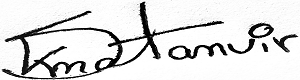 Kmd Tanvir